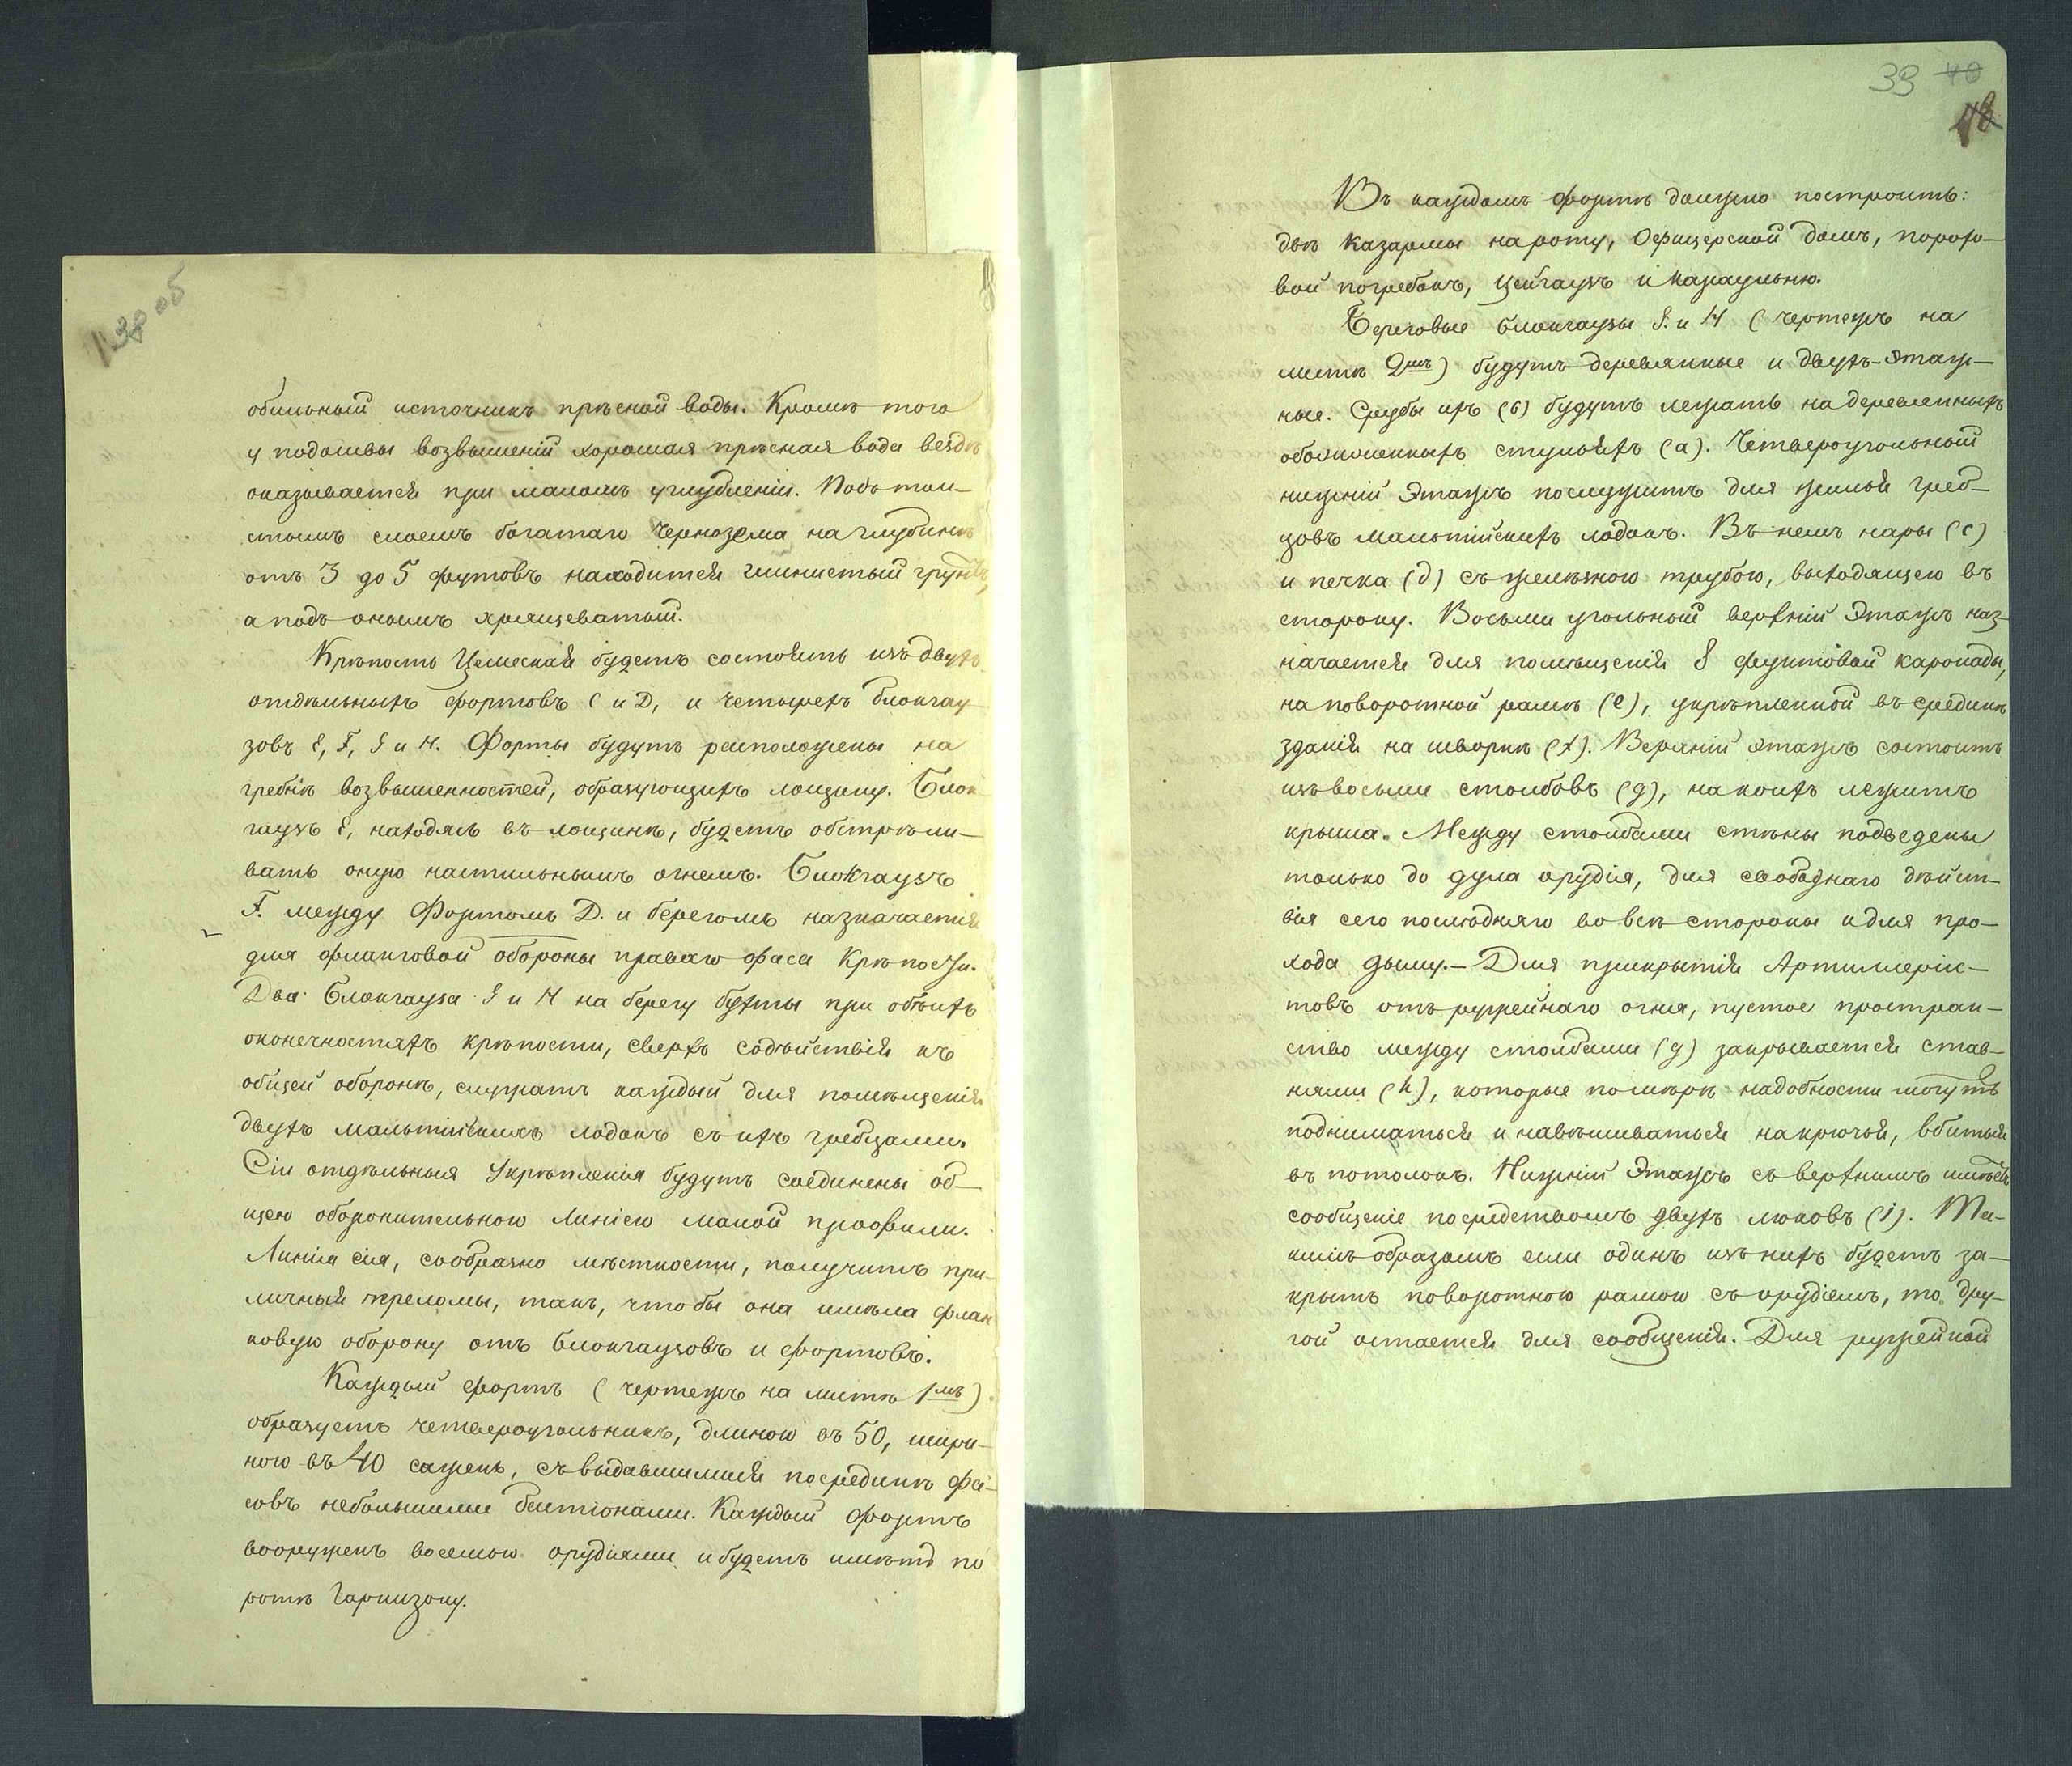 38 об
обильный источникъ прѣсной воды. Кромѣ того
у подошвы возвышеній хорошая прѣсная вода вездѣ
оказывается при маломъ углубленіи. Подъ тол-
стымъ слоемъ богатаго чернозема на глубинѣ
отъ 3 до 5 футовъ находится глинистый грунтъ,
а подъ онымъ хрящеватый.
Крѣпость Цемеская будетъ состоять изъ двухъ
отдѣльныхъ фортовъ C и D, и четырехъ блокгау
зовъ E, F, G и H. Форты будутъ расположены на
гребнѣ возвышенностей, образующихъ лощину. Блок
гаузъ E, находясь въ лощинѣ, будетъ обстрѣли-
вать оную настильнымъ огнемъ. Блокгаузъ
F. между Фортомъ D. и берегомъ назначается
для фланговой обороны праваго фаса Крѣпости.
Два Блокгауза G и H на берегу бухты при обѣихъ
оконечностяхъ крѣпости, сверхъ содѣйствія къ
общей оборонѣ, служатъ каждый для помѣщенія
двухъ мальтійскихъ лодокъ съ ихъ гребцами.
Сіи отдѣльныя Укрѣпленія будутъ соединены об-
щею оборонительною Линіею малой профили.
Линія сія, сообразно мѣстности, получитъ при-
личныя переломы, такъ, чтобы она имѣла флан
ковую оборону отъ блокгаузовъ и фортовъ.
Каждый фортъ (чертежъ на листѣ 1мъ)
образуетъ четвероугольникъ, длиною въ 50, шири-
ною въ 40 сажень, съ выдавшимися посрединѣ фа-
совъ небольшими бастіонами. Каждый фортъ
вооруженъ восемью орудіями и будетъ имѣть по
ротѣ Гарнизону.
39 40
Въ каждомъ фортѣ должно построить:
двѣ казармы на роту, Офицерской домъ, порохо-
вой погребокъ, цейгаузъ и караульню.
Береговые блокгаузы G. и H (чертежъ на
листѣ 2мъ) будутъ деревянные и двухъ-этаж-
ные. Срубы ихъ (b) будутъ лежать на деревянныхъ
обозженныхъ стульяхъ (a). Четвероугольный
нижній этажъ послужитъ для жилья греб-
цовъ мальтійскихъ лодокъ. Въ немъ нары (c)
и печка (d) съ желѣзною трубою, выходящею въ
сторону. Восьми угольный верхній этажъ наз-
начается для помѣщенія 8 фунтовой каронады,
на поворотной рамѣ (e), укрѣпленной въ срединѣ
зданія на шворнѣ (f). Верхній этажъ состоитъ
изъ восьми столбовъ (g), на коихъ лежитъ
крыша. Между столбами стѣны подведены
только до дула орудія, для свободнаго дѣйст-
вія сего послѣдняго во всѣ стороны и для про-
хода дыму.— Для прикрытія Артиллерис-
товъ отъ ружейнаго огня, пустое простран-
ство между столбами (g) закрывается став-
нями (h), которые по мѣрѣ надобности могутъ
подниматься и навѣшиваться на крючья, вбитыя
въ потолокъ. Нижній этажъ съ верхнимъ имѣетъ
сообщеніе посредствомъ двухъ люковъ (i). Та-
кимъ образомъ если одинъ изъ нихъ будетъ за-
крытъ поворотною рамою съ орудіемъ, то дру-
гой остается для сообщенія. Для ружейной